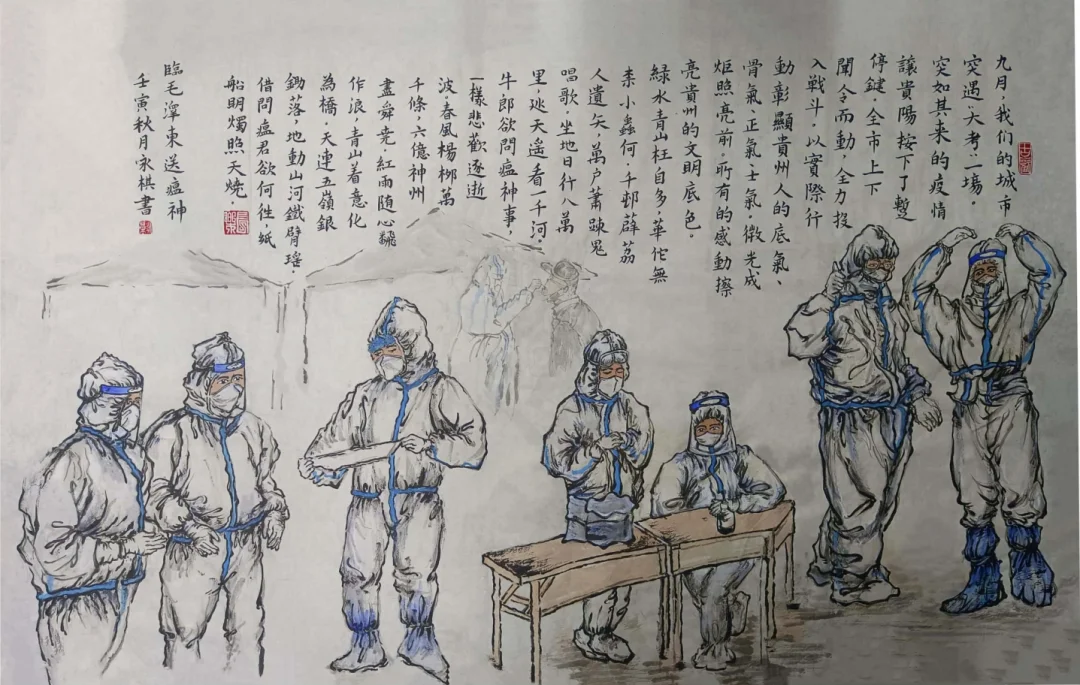 九月，我们的城市
突遇"大考"一場。
突如其来的疫情
讓貴陽按下了暫
停鍵，全市上下
聞令而動，全力投
入戰斗，以實際行
動彰顯貴州人的底氣、
骨氣、正氣、士氣，微光成
炬照亮前，所有的感動擦
亮貴州的文明底色。
綠水青山枉自多，華佗無
柰小蟲何，千邨薜荔
人遺矢，萬户蕭踈鬼
唱歌，坐地日行八萬
里，巡天遥看一千河，
牛郎欲問瘟神事，
一樣悲歡逐逝
波，春風楊柳萬
千條，六億神州
盡舜尭，紅雨随心飜
作浪，青山着意化
為橋，天連五嶺銀
鋤落，地動山河鐵臂瑶，
借問瘟君欲何徃，紙
船明燭照天燒。
臨毛澤東送瘟神
壬寅秋月永棋書